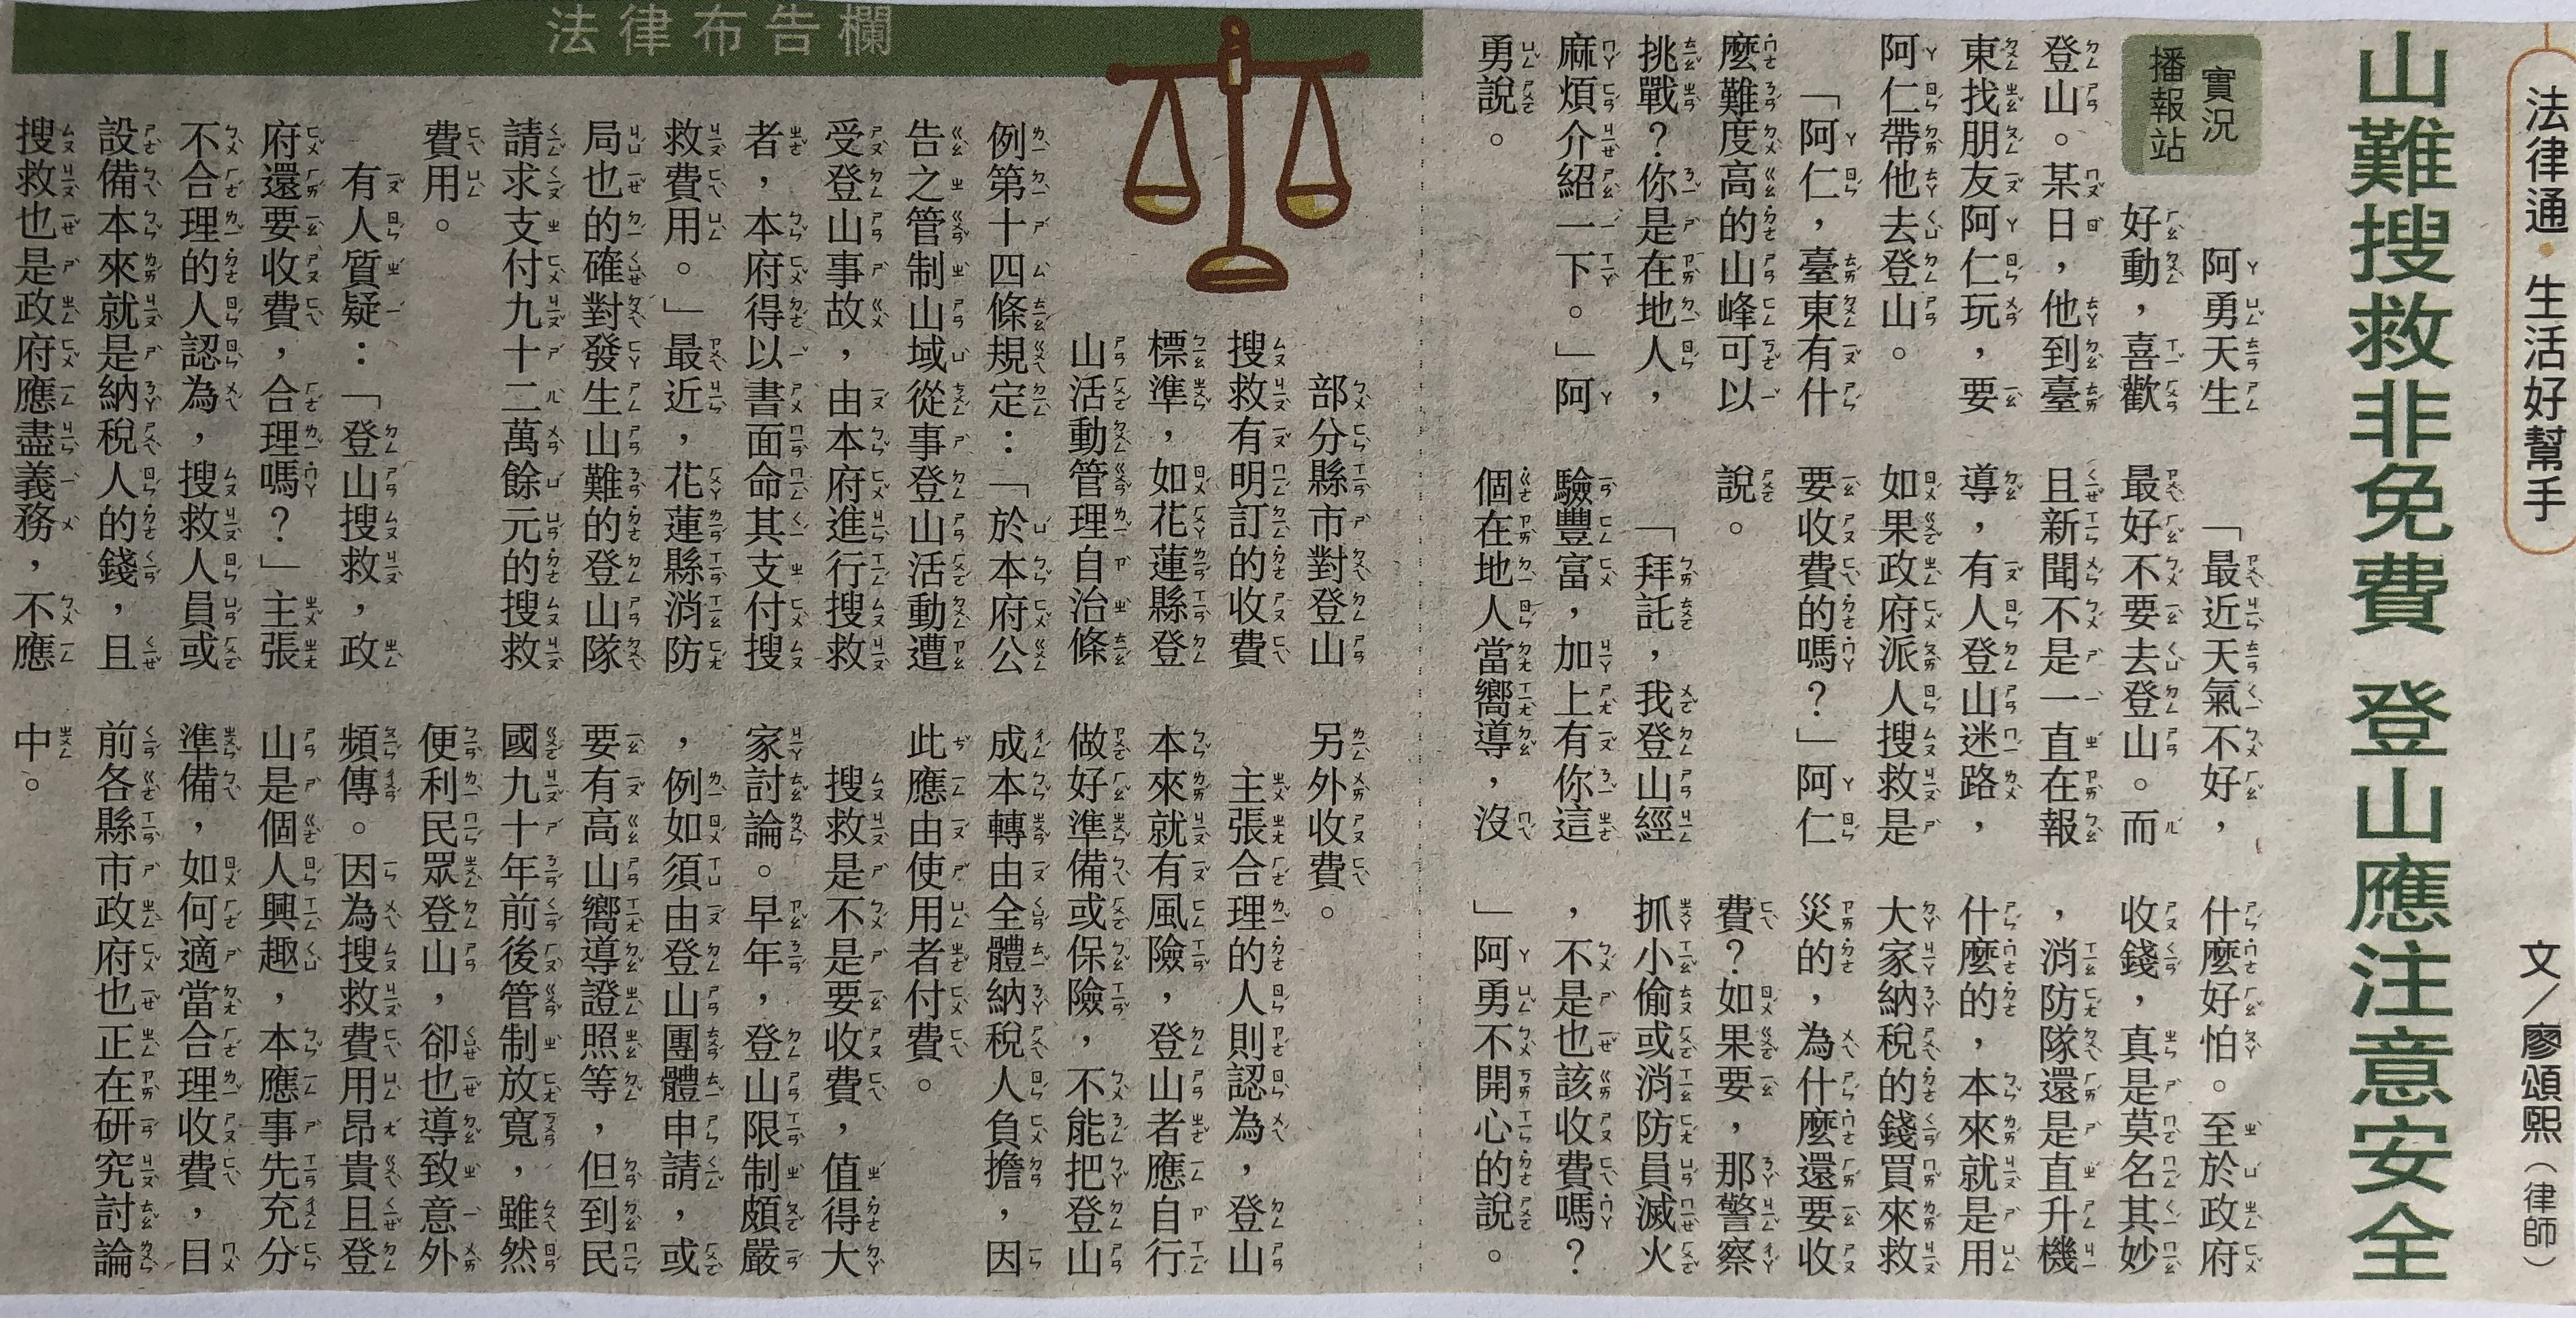 法律通•生活好幫手
文／廖頌熙（律師）
山難搜救非免費 登山應注意安全
實況
播報站
阿勇天生
好動，喜歡
登山。某日，他到臺
東找朋友阿仁玩，要
阿仁帶他去登山。
「阿仁，臺東有什
麼難度高的山峰可以
挑戰？你是在地人，
麻煩介紹一下。」阿
勇說。
「最近天氣不好，
最好不要去登山。而
且新聞不是一直在報
導，有人登山迷路，
如果政府派人搜救是
要收費的嗎？」阿仁
說。
「拜託，我登山經
驗豐富，加上有你這
個在地人當嚮導，沒
什麼好怕。至於政府
收錢，真是莫名其妙
，消防隊還是直升機
什麼的，本來就是用
大家納稅的錢買來救
災的，為什麼還要收
費？如果要，那警察
抓小偷或消防員滅火
，不是也該收費嗎？
」阿勇不開心的說。
法律布告欄
部分縣市對登山
搜救有明訂的收費
標準，如花蓮縣登
山活動管理自治條
例第十四條規定：「於本府公
告之管制山域從事登山活動遭
受登山事故，由本府進行搜救
者，本府得以書面命其支付搜
救費用。」最近，花蓮縣消防
局也的確對發生山難的登山隊
請求支付九十二萬餘元的搜救
費用。
有人質疑：「登山搜救，政
府還要收費，合理嗎？」主張
不合理的人認為，搜救人員或
設備本來就是納稅人的錢，且
搜救也是政府應盡義務，不應
另外收費。
主張合理的人則認為，登山
本來就有風險，登山者應自行
做好準備或保險，不能把登山
成本轉由全體納稅人負擔，因
此應由使用者付費。
搜救是不是要收費，值得大
家討論。早年，登山限制頗嚴
，例如須由登山團體申請，或
要有高山嚮導證照等，但到民
國九十年前後管制放寬，雖然
便利民眾登山，卻也導致意外
頻傳。因為搜救費用昂貴且登
山是個人興趣，本應事先充分
準備，如何適當合理收費，目
前各縣市政府也正在研究討論
中。